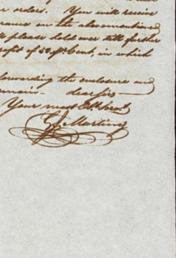 orders. You will receive
on the abovementioned
please hold over till further
profit of 50 pr Cent, in which
forwarding the enclosure and
remain dear Sir
Your most Obt Servt
Martins